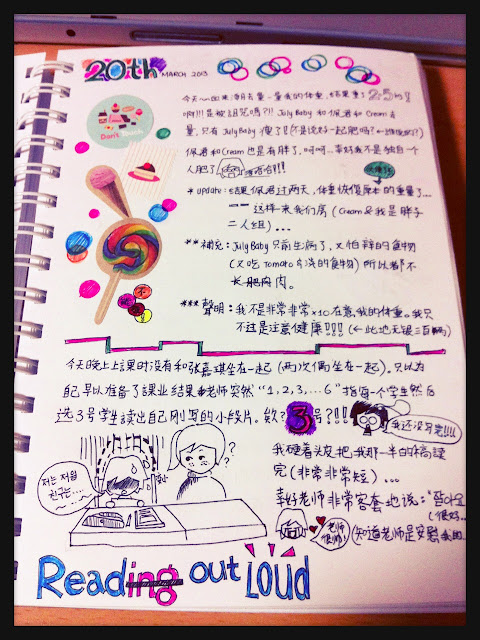 20th MARCH 2013
今天 run 回来净身去量一量我的体重,结果重了 2.5 kg!
啊!!! 是被诅咒吗?!! July Baby 和佩君和 Cream 去
量,只有 July Baby 瘦了
佩君和 Cream 也是有胖了,呵呵...幸好我不是独自一
个人胖了
Don't
* update: 佩君过两天,体重恢复原本的重量了...
这样一来我们房 (Cream & 我是胖子
二人组) ...
** 补充: July Baby 只前生病了,又怕辣的食物
(又吃 Tomato 的食物) 所以都不
长肥肉肉。
*** 聲明: 我不是非常非常x10在意我的体重。我只
不过是注意健康!!! (← 此地无银三百啊)
今天晚上上課时没有和张嘉琪坐在一起 (两次偶坐在一起)。只以为
自己早以准备了課业结果老师突然 "1, 2, 3, ... 6" 指每一个学生然后
选 3 号学生讀出自己刚写的小段片。欸? 3号?!!!
我还没写完!!!!
我硬着头皮把我那一半的稿讀
完 (非常非常短) ...
幸好老师非常客套地说: "잘하
(很好..
老师很帅!
(知道老师是安慰我的..
저는 저원
친구는....
? ?
Reading out Loud